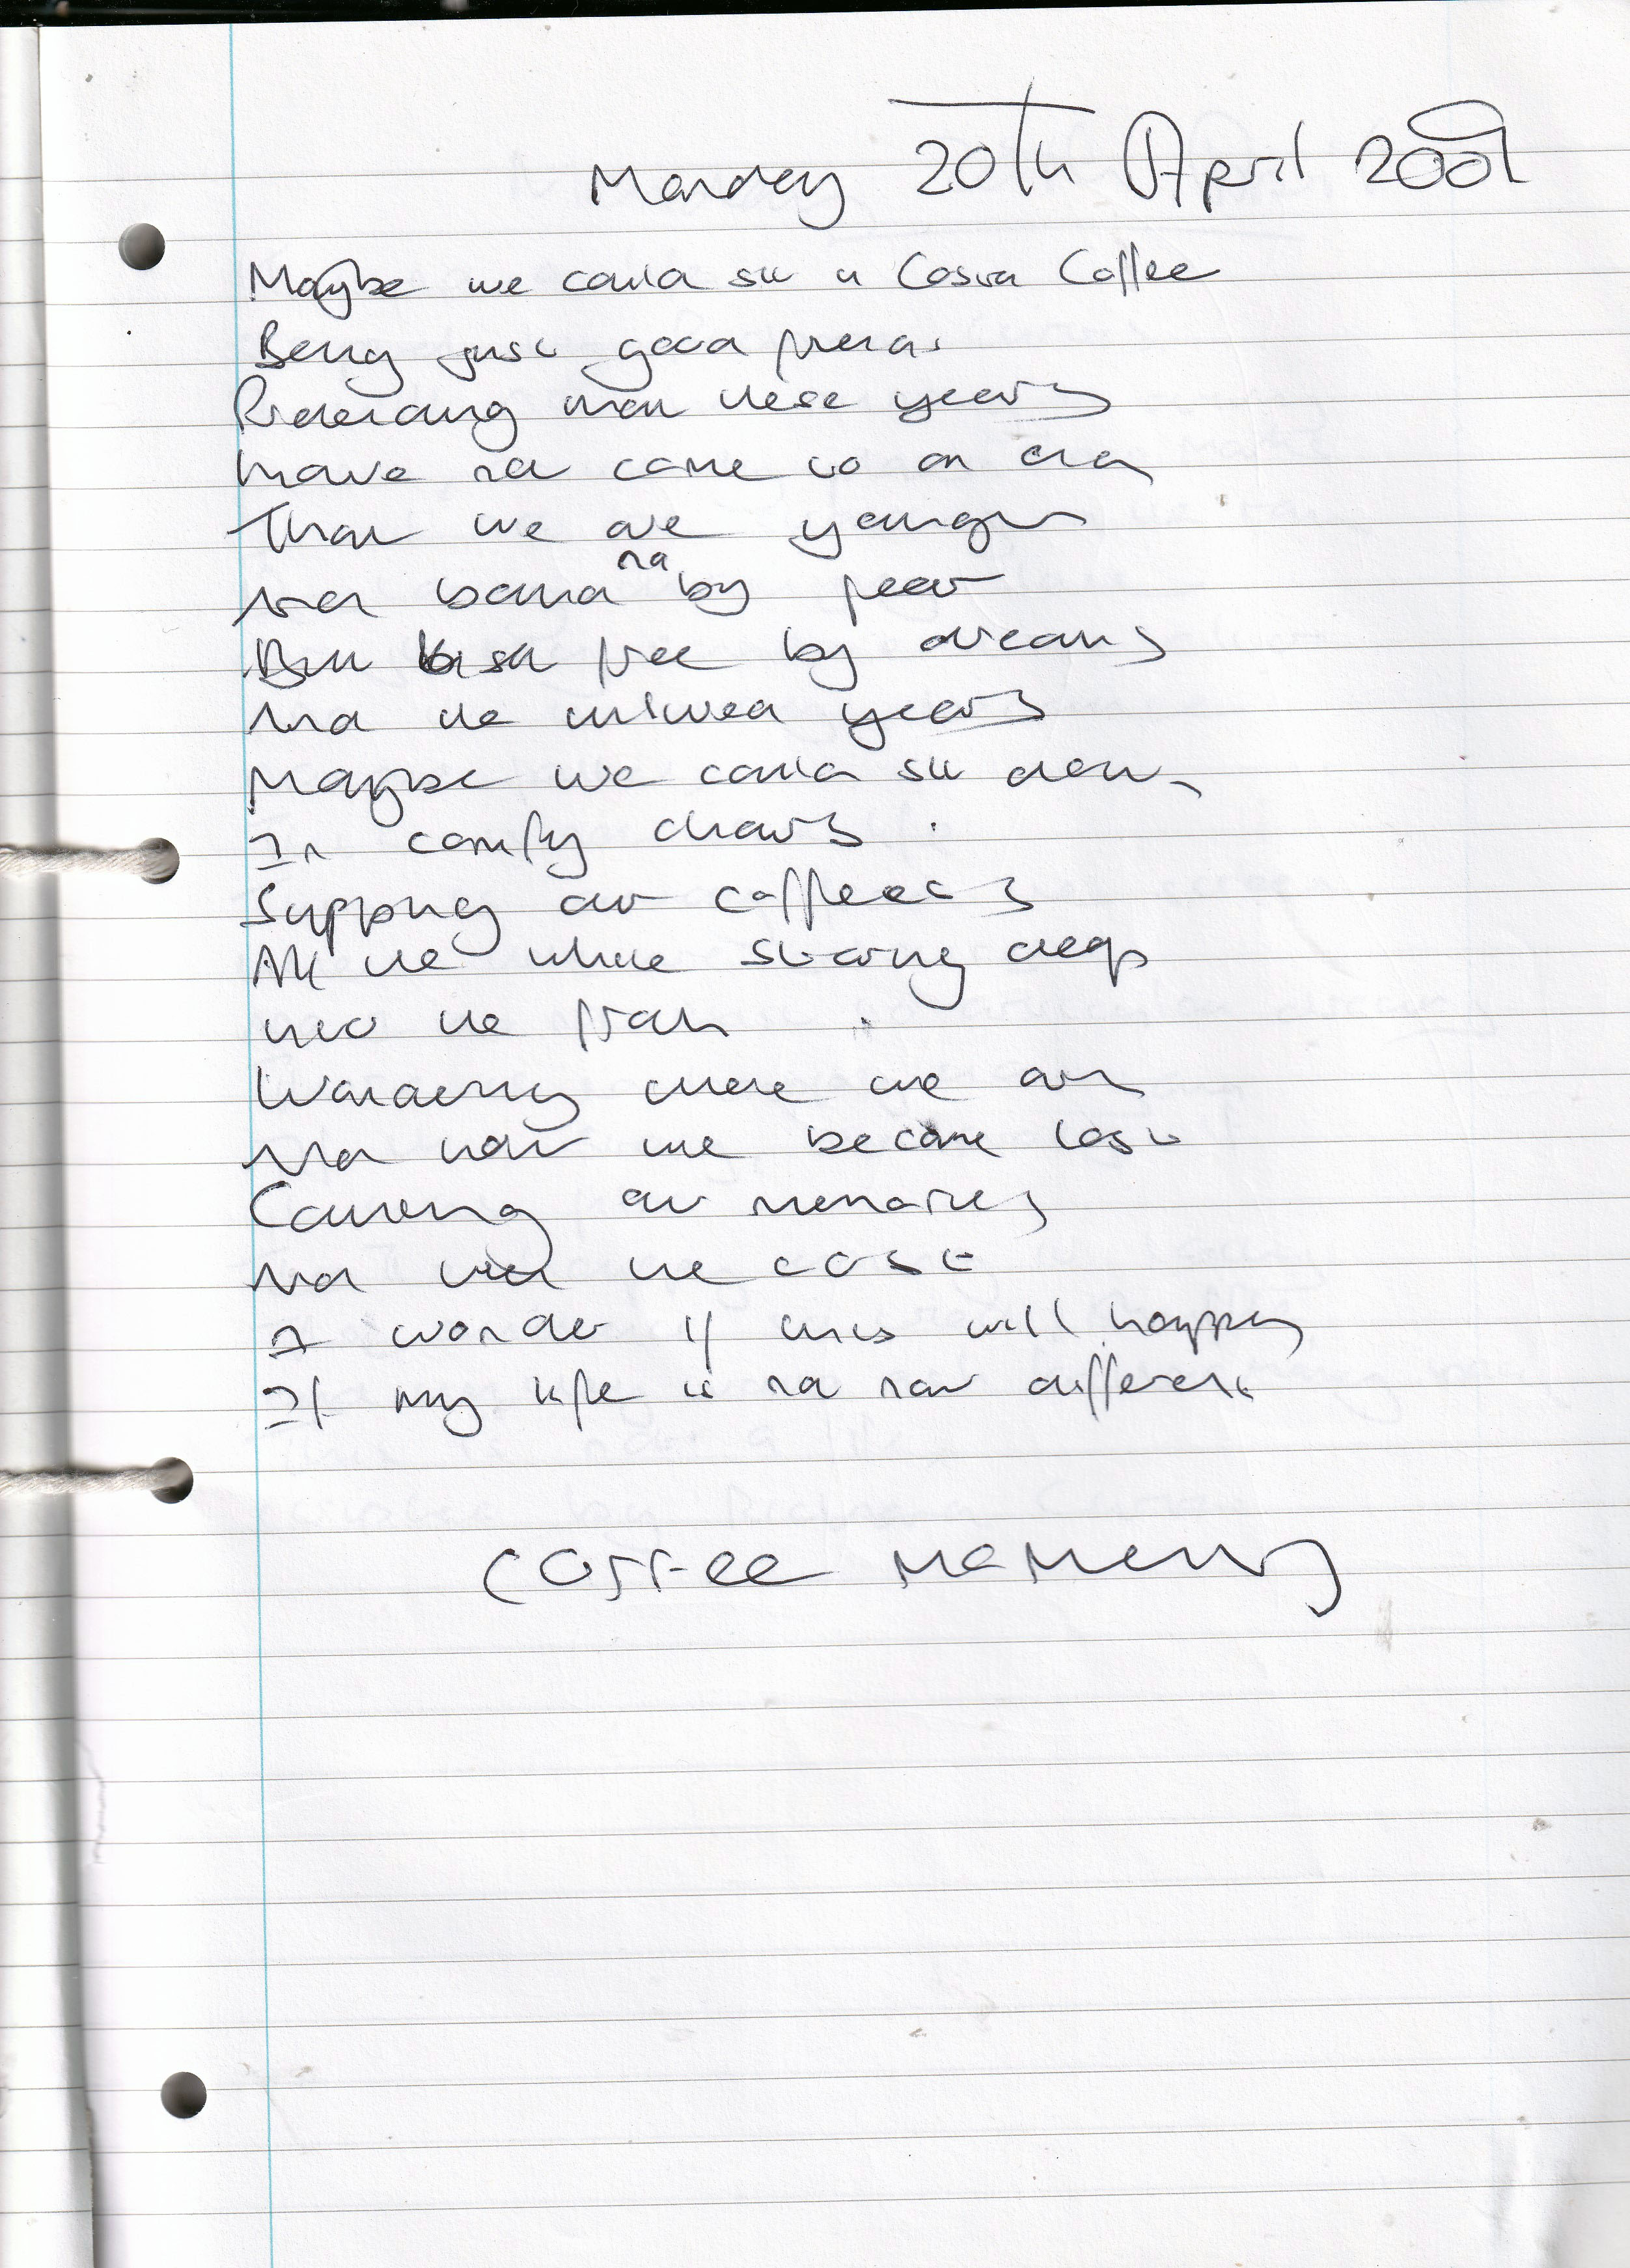 Monday 20Th April 2009
Maybe we could sit in Costa Coffee
Being just good friends
that these years
have not come to an end
That we are younger
not bound by fear
But set free by dreams
And the years
Maybe we could sit down
In comfy chairs
Supping our coffees
All the while staring deep
into the froth
Wondering where we are
And how we became lost
Counting our memories
And the cost
I wonder if this will happen
If my life is not now different
Coffee Memory